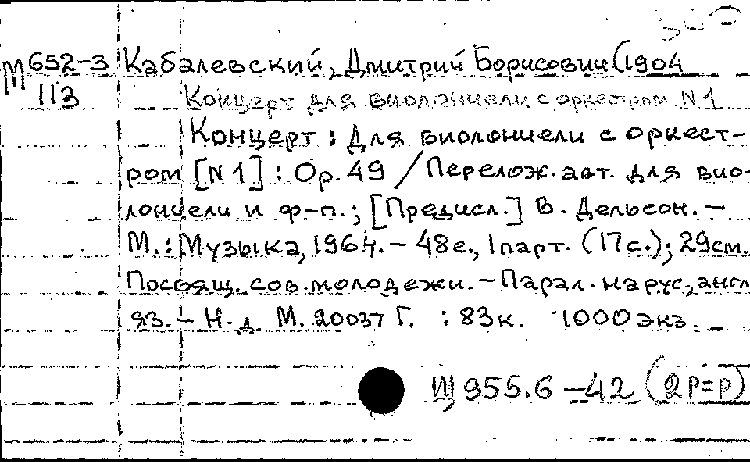 М 652-3 Кабалевский, Дмитрий Борисович (1904
113 Концерт для виолончели с оркестром N 1
Концерт : Для виолончели с оркест-
ром [N 1] : Ор. 49 / Перелож. авт. для вио-
лончели и ф-п. ; [Предисл.] В. Дельсон. –
М. : Музыка, 1964. – 48 с., 1 парт. (17 с.) ; 29 см.
Посвящ. сов. молодежи. – Парал. на рус., англ
яз. – Н. д. М. 20037 Г. : 83 к. 1000 экз. –
Щ 955.6 – 42 (2Р=Р)